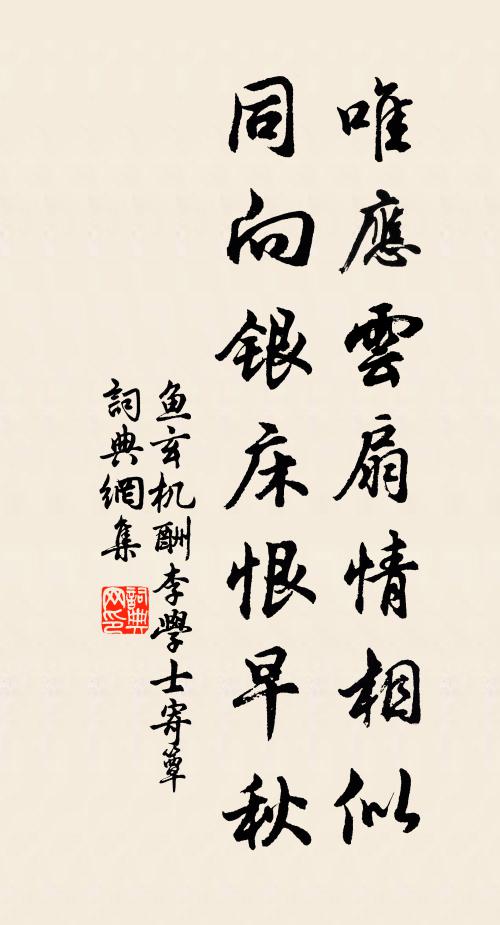 唯應雲扇情相似
同向銀床恨早秋
鱼玄机酬李學士寄簟
詞典網集
詞典网印